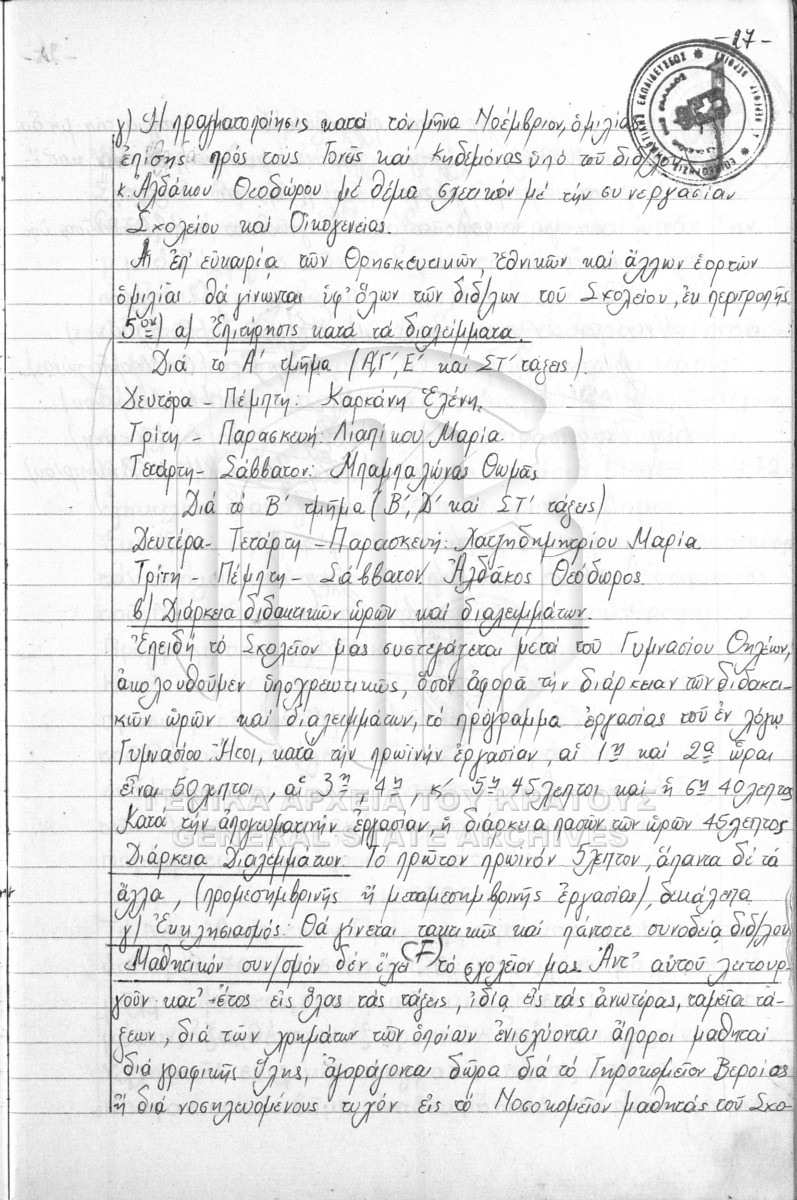 -27-
γ) Ἡ πραγματοποίησις κατά τόν μῆνα Νοέμβριον, ὁμιλίας
ἐπίσης πρός τους Γονεῖς καί Κηδεμόνας ὑπό τοῦ διδ/λου
κ. Ἀλδάκου Θεοδώρου μέ θέμα σχετικόν μέ τήν συνεργασίαν
Σχολείου καί Οἰκογενείας.
Αἱ ἐπ' εὐκαιρίᾳ τῶν Θρησκευτικῶν, Ἐθνικῶν καί ἄλλων ἑορτῶν
ὁμιλίαι θά γίνωνται ὑφ' ὅλων τῶν διδ/λων τοῦ Σχολείου, ἐκ περιτροπῆς.
5ον) α) Ἐπιτήρησις κατά τά διαλείμματα.
Διά τό Α' τμῆμα (Α', Γ', Ε' καί ΣΤ' τάξεις).
Δευτέρα - Πέμπτη: Καρκάνη Ἑλένη.
Τρίτη - Παρασκευή: Λιαπίκου Μαρία.
Τετάρτη - Σάββατον: Μπαμπαλώνας Θωμᾶς
Διά τό Β' τμῆμα (Β', Δ' καί ΣΤ' τάξεις)
Δευτέρα - Τετάρτη - Παρασκευή: Χατζηδημητρίου Μαρία.
Τρίτη - Πέμπτη - Σάββατον Ἀλδάκος Θεόδωρος.
β) Διάρκεια διδακτικῶν ὡρῶν καί διαλειμμάτων.
Ἐπειδή τό Σχολεῖον μας συστεγάζεται μετά τοῦ Γυμνασίου Θηλέων,
ἀκολουθοῦμεν ὑποχρεωτικῶς, ὅσον ἀφορᾶ τήν διάρκειαν τῶν διδακτι-
κῶν ὡρῶν καί διαλειμμάτων, τό πρόγραμμα ἐργασίας τοῦ ἐν λόγῳ
Γυμνασίου. Ἤτοι, κατά τήν πρωϊνήν ἐργασίαν, αἱ 1η καί 2α ὧραι
εἶναι 50λεπτοι, αἱ 3η, 4η, κ' 5η 45λεπτοι καί ἡ 6η 40λεπτος
ΓΕΝΙΚΑ ΑΡΧΕΙΑ ΤΟΥ ΚΡΑΤΟΥΣ
Κατά τήν ἀπογευματινήν ἐργασίαν, ἡ διάρκεια πασῶν τῶν ὡρῶν 45λεπτος
GENERAL STATE ARCHIVES
Διάρκεια Διαλειμμάτων. Τό πρῶτον πρωινόν 5λεπτον, ἅπαντα δέ τά
ἄλλα, (προμεσημβρινῆς ἤ μεταμεσημβρινῆς ἐργασίας), δεκάλεπτα
γ) Ἐκκλησιασμός: Θά γίνεται τακτικῶς καί πάντοτε συνοδείᾳ διδ/λου
Μαθητικόν συν/σμόν δέν ἔχει (F) τό σχολεῖον μας. Ἀντ' αὐτοῦ λειτουρ-
γοῦν κατ' ἔτος εἰς ὅλας τάς τάξεις, ἰδίᾳ εἰς τάς ἀνωτέρας, ταμεῖα τά-
ξεων, διά τῶν χρημάτων τῶν ὁποίων ἐνισχύονται ἄποροι μαθηταί
διά γραφικῆς ὕλης, ἀγοράζονται δῶρα διά τό Γηροκομεῖον Βεροίας
ἤ διά νοσηλευομένους τυχόν εἰς τό Νοσοκομεῖον μαθητάς τοῦ Σχο-